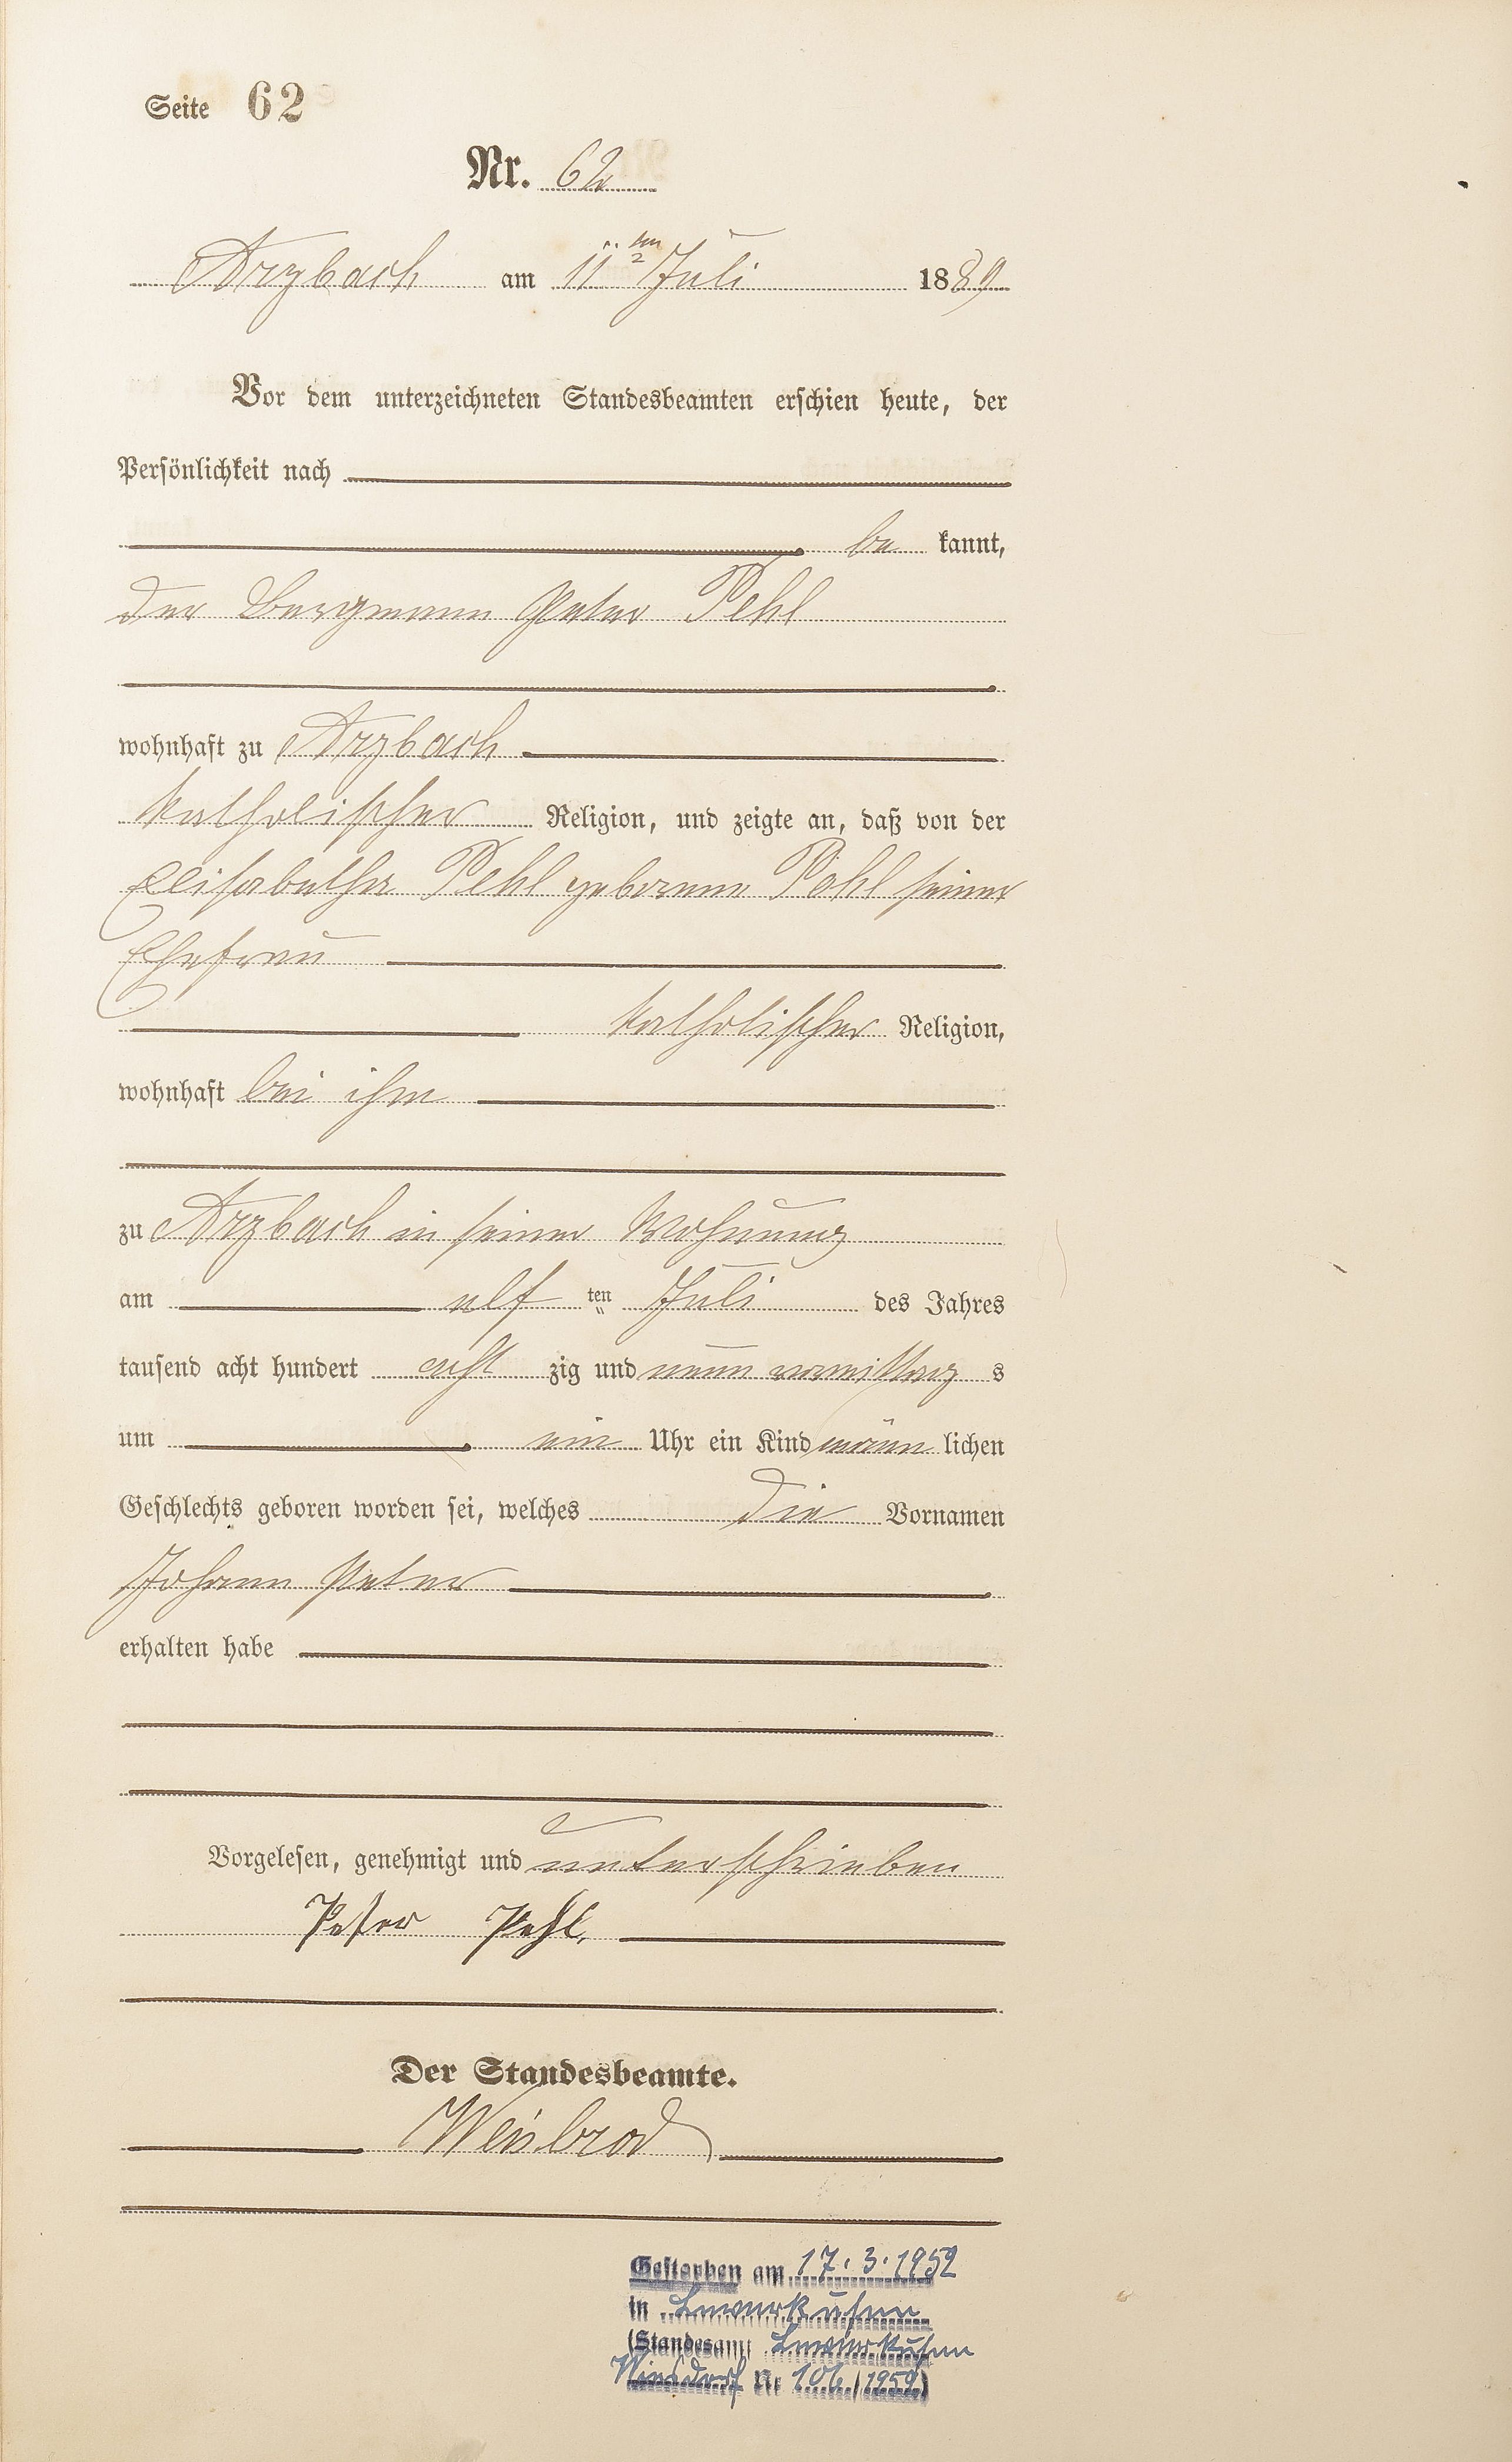 Seite 62
Nr. 62
Arzbach am 11ten Juli 1889
Vor dem unterzeichneten Standesbeamten erschien heute, der
Persönlichkeit nach
be kannt,
der Bergmann Peter Pehl
wohnhaft zu Arzbach
katholischer Religion, und zeigte an, daß von der
Elisabetha Pehl geborene Pohl seiner
Ehefrau
katholischer Religion,
wohnhaft bei ihm
zu Arzbach in seiner Wohnung
am elf ten Juli des Jahres
tausend acht hundert acht zig und neun vormittag s
um ein Uhr ein Kind männ lichen
Geschlechts geboren worden sei, welches die Vornamen
Johann Peter
erhalten habe
Vorgelesen, genehmigt und unterschrieben
Peter Pehl.
Der Standesbeamte.
Weisbrod
Gestorben am 17.3.1959
in Leverkusen
(Standesamt Leverkusen
Nr. 106/1959)